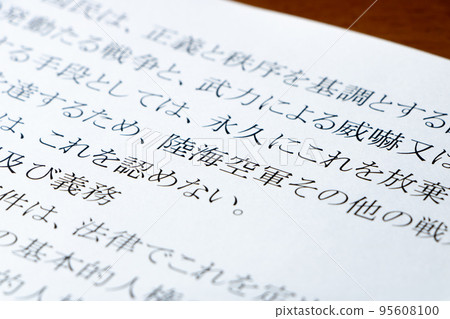 国民は、正義と秩序を基調とする
発動たる戦争と、武力による威嚇又は
する手段としては、永久にこれを放棄
を達するため、陸海空軍その他の戦
は、これを認めない。
及び義務
件は、法律でこれを定
の基本的人権
的人
95608100